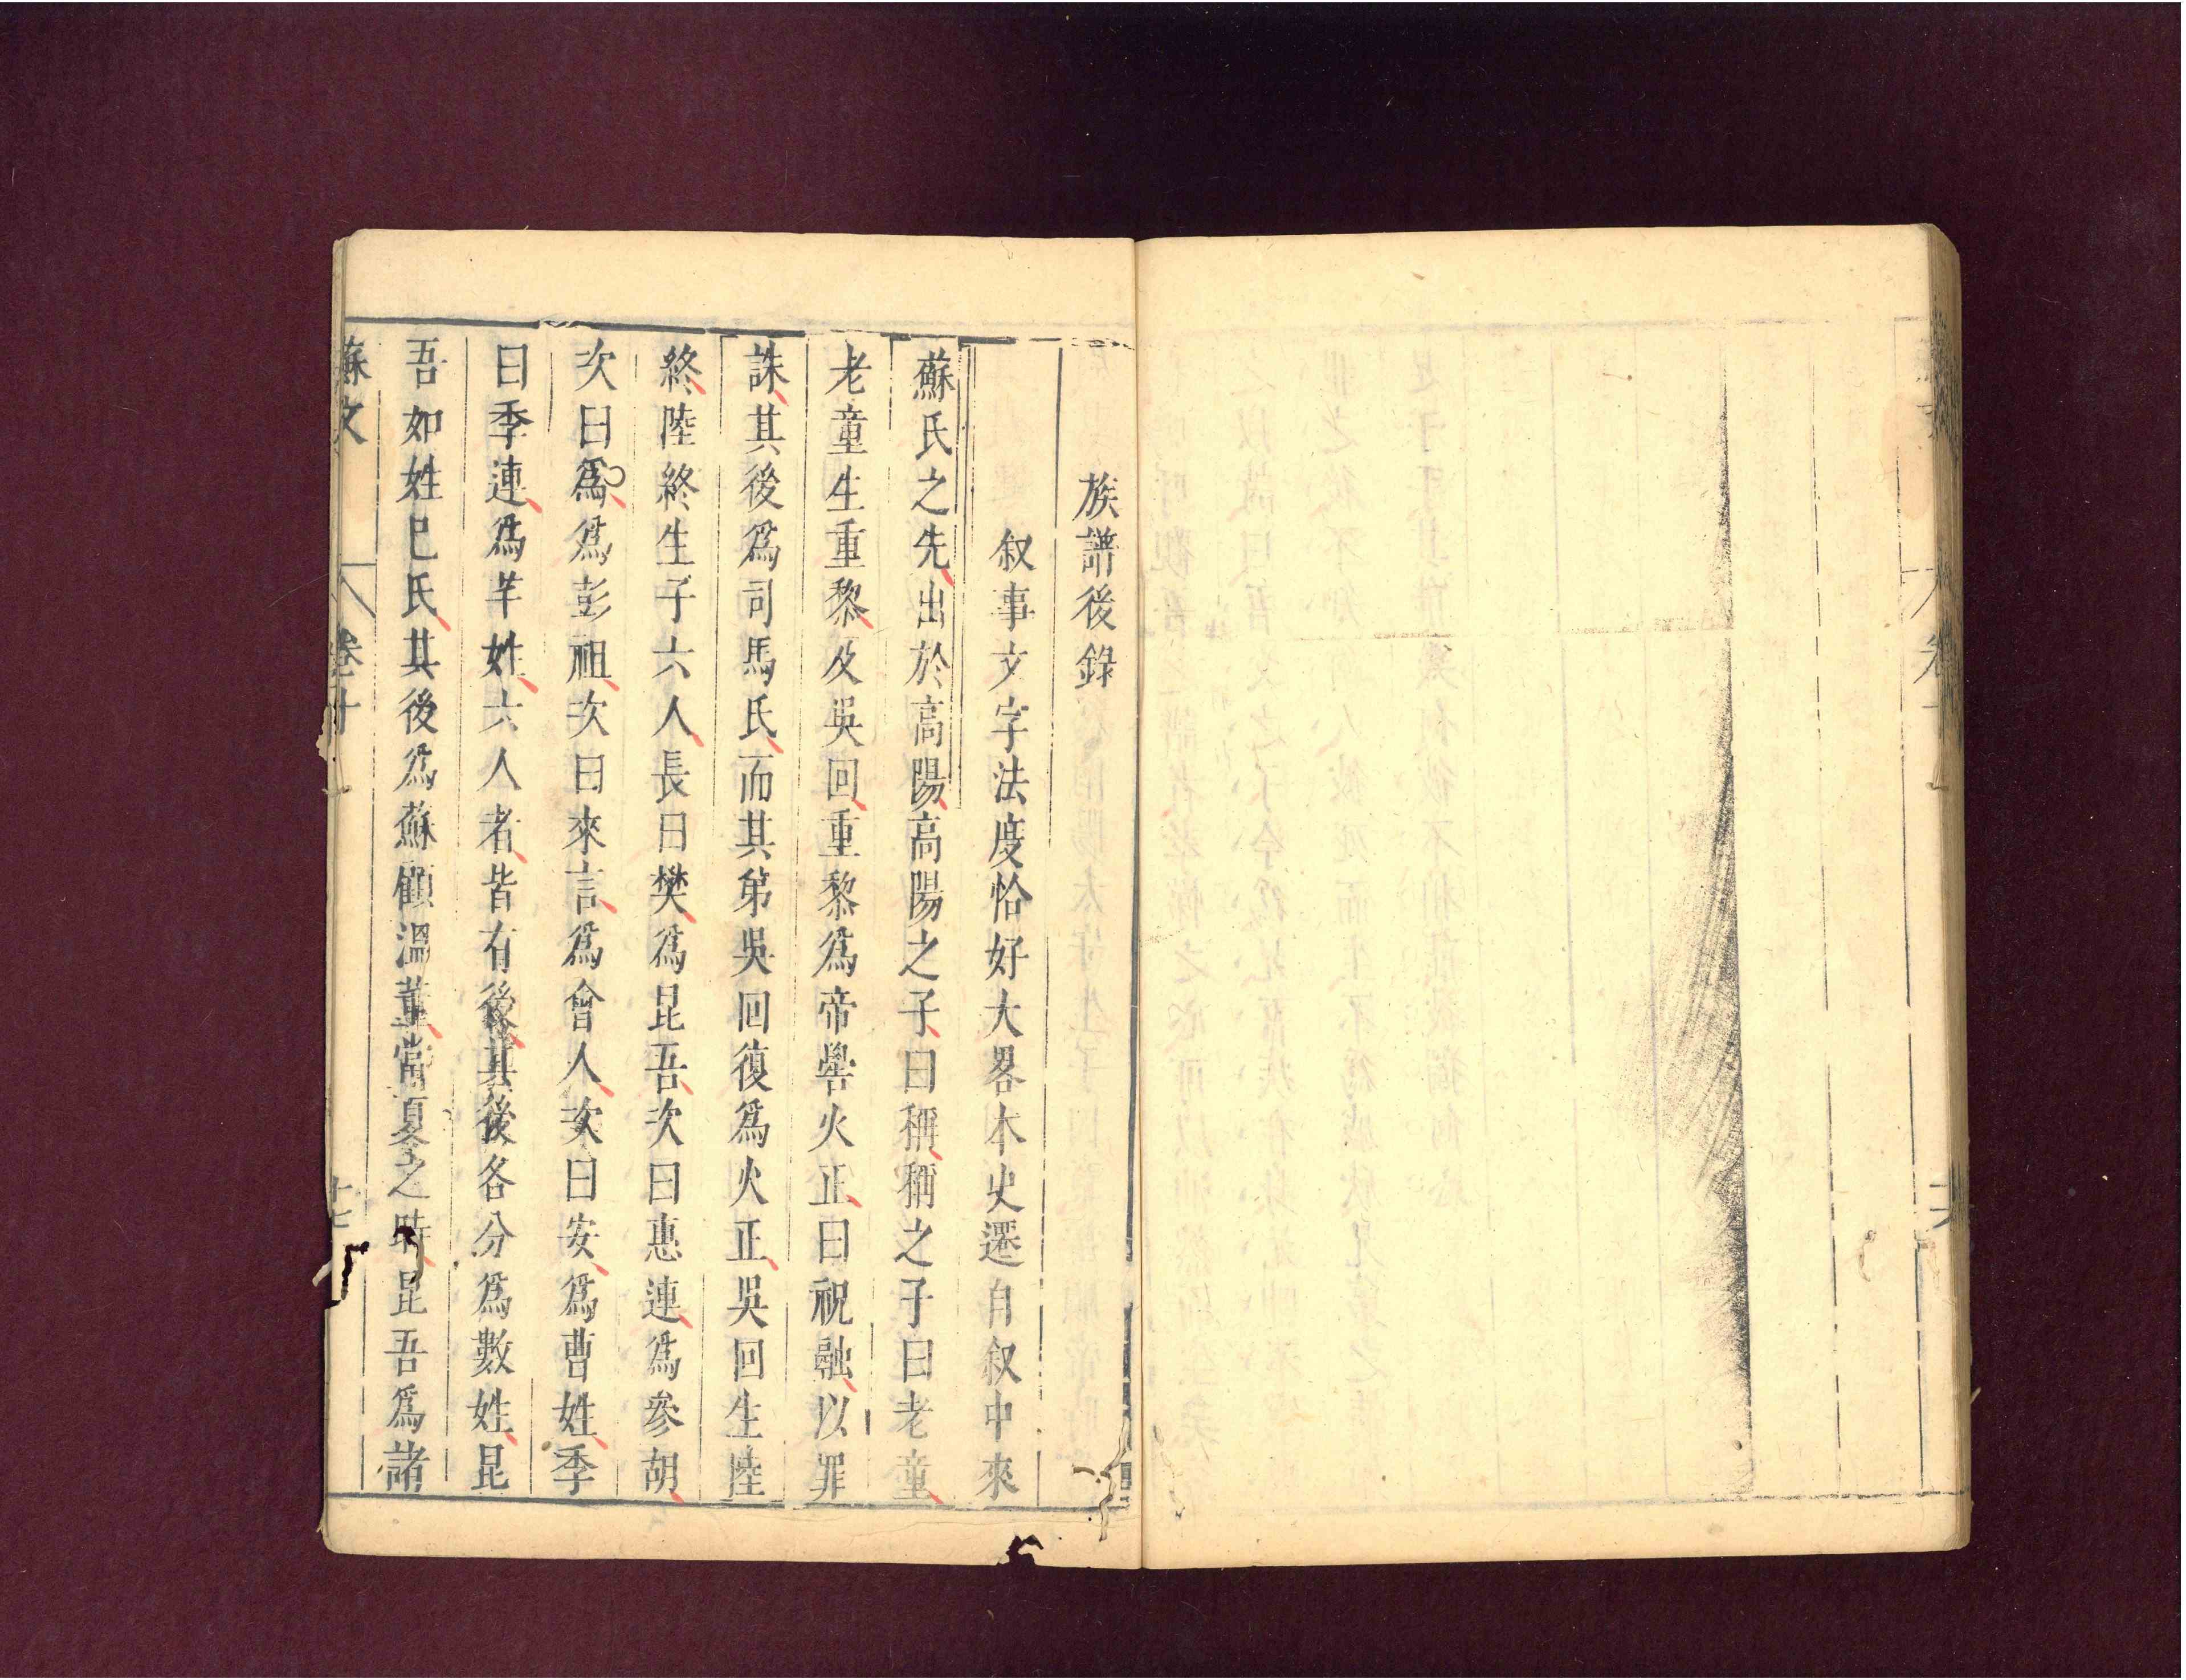 族譜後錄
叙事文字法度恰好大畧本史遷自叙中來
蘇氏之先出於高陽高陽之子曰稱稱之子曰老童
老童生重黎及吳回重黎爲帝嚳火正曰祝融以罪
誅其後爲司馬氏而其弟吳回復爲火正吳回生陸
終陸終生子六人長曰樊爲昆吾次曰惠連爲參胡
次曰爲爲彭祖次曰來言爲會人次曰安爲曹姓季
曰季連爲羋姓六人者皆有後其後各分爲數姓昆
吾如姓巳氏其後爲蘇顧溫董當夏之時昆吾爲諸
蘇文 卷十 十七